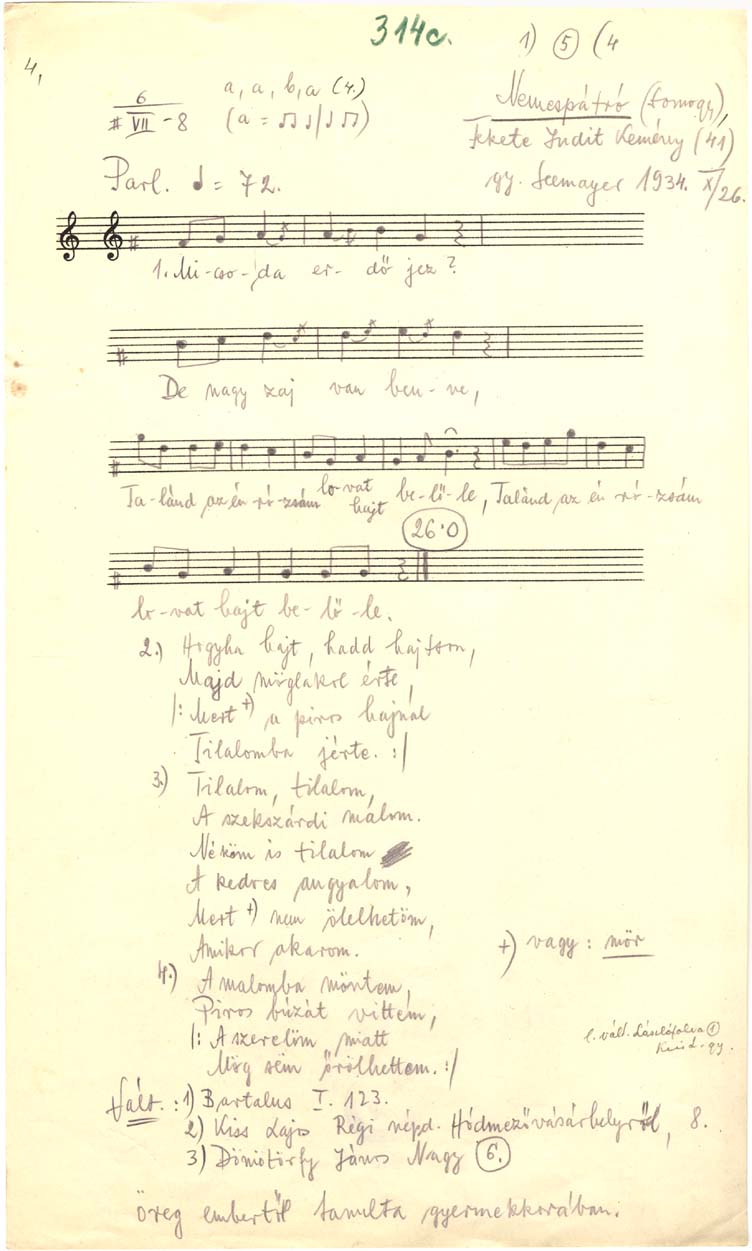 314c.
1) 5 (4
4,
6
# VII -8
a, a, b, a (4.)
Nemespátró (Somogy),
Fekete Judit Kemény (41)
Parl. = 72.
gy. Seemayer 1934. X/26.
1. Mi-cso-da er-dő jez?
De nagy zaj van ben-ne,
Ta-lánd az én ró-zsám lo-vat hajt be-lő-le, Talánd az én ró-zsám
26·0
lo-vat hajt be-lő-le.
2.) Hogyha hajt, hadd hajtson,
Majd möglakol érte,
|: Mert +) a piros hajnal
Tilalomba jérte. :|
3.) Tilalom, tilalom,
A szekszárdi malom.
Néköm is tilalom
A kedves angyalom,
Mert +) nem ölelhetöm,
Amikor akarom.
+) vagy: mör
4.) A malomba möntem,
Piros búzát vittem,
|: A szerelöm miatt
Mög sem örölhettem. :|
l. vált. Lászlófalva 1
Vált.: 1) Bartalus I. 123.
2) Kiss Lajos Régi népd. Hódmezővásárhelyről, 8.
3) Dömötörfy János Nagy 6.
öreg embertől tanulta gyermekkorában.